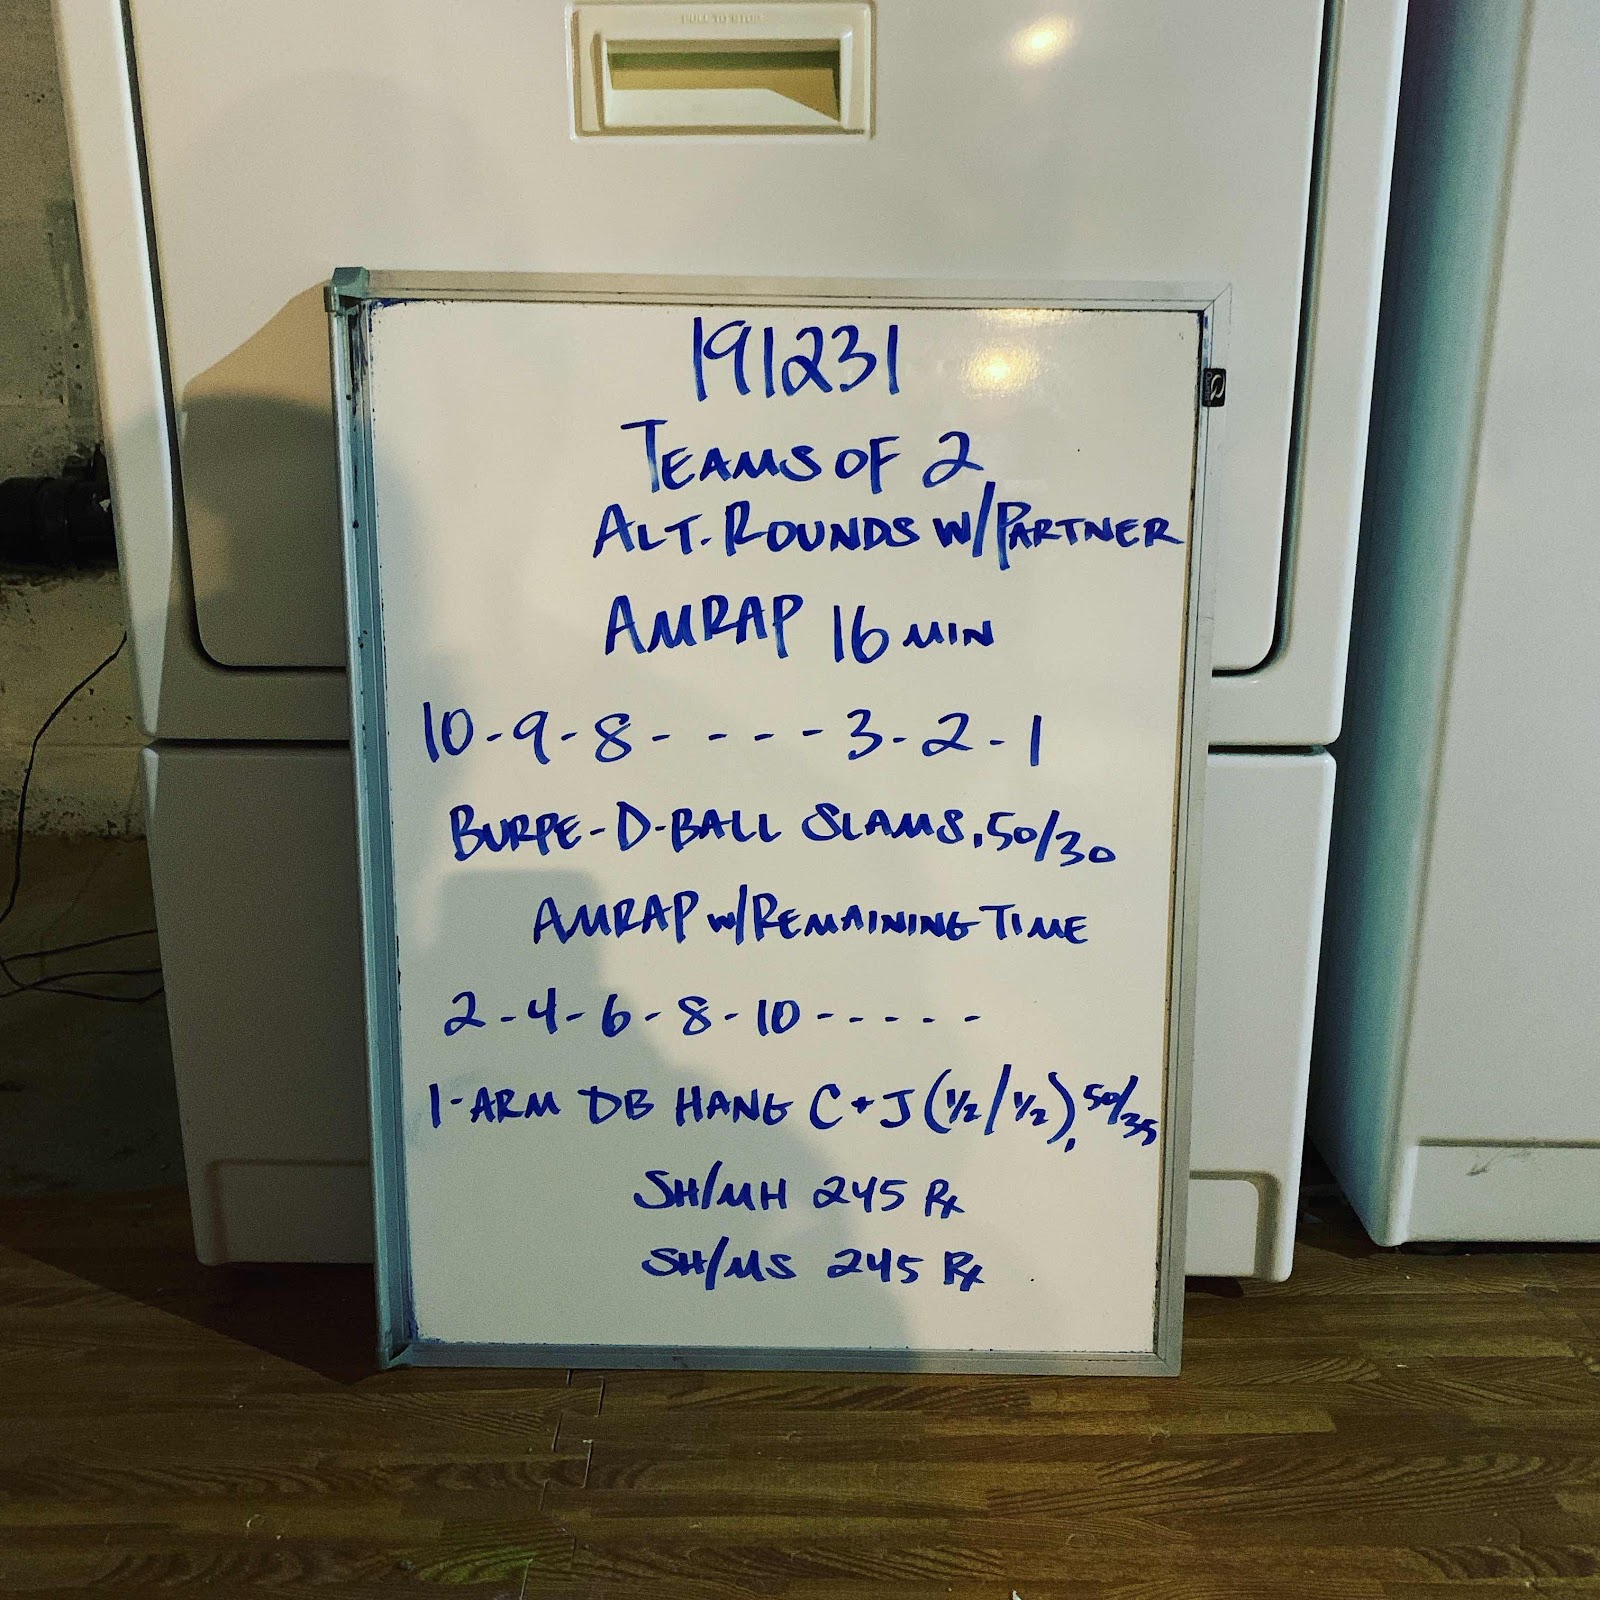 PULL TO STOP
191231
TEAMS OF 2
ALT. ROUNDS W/PARTNER
AMRAP 16 MIN
10-9-8-----3-2-1
BURPE-D-BALL SLAMS, 50/30
AMRAP W/REMAINING TIME
2-4-6-8-10-----
1-ARM DB HANG C+J (1/2/1/2), 50/35
SH/MH 245 Rx
SH/MS 245 Rx